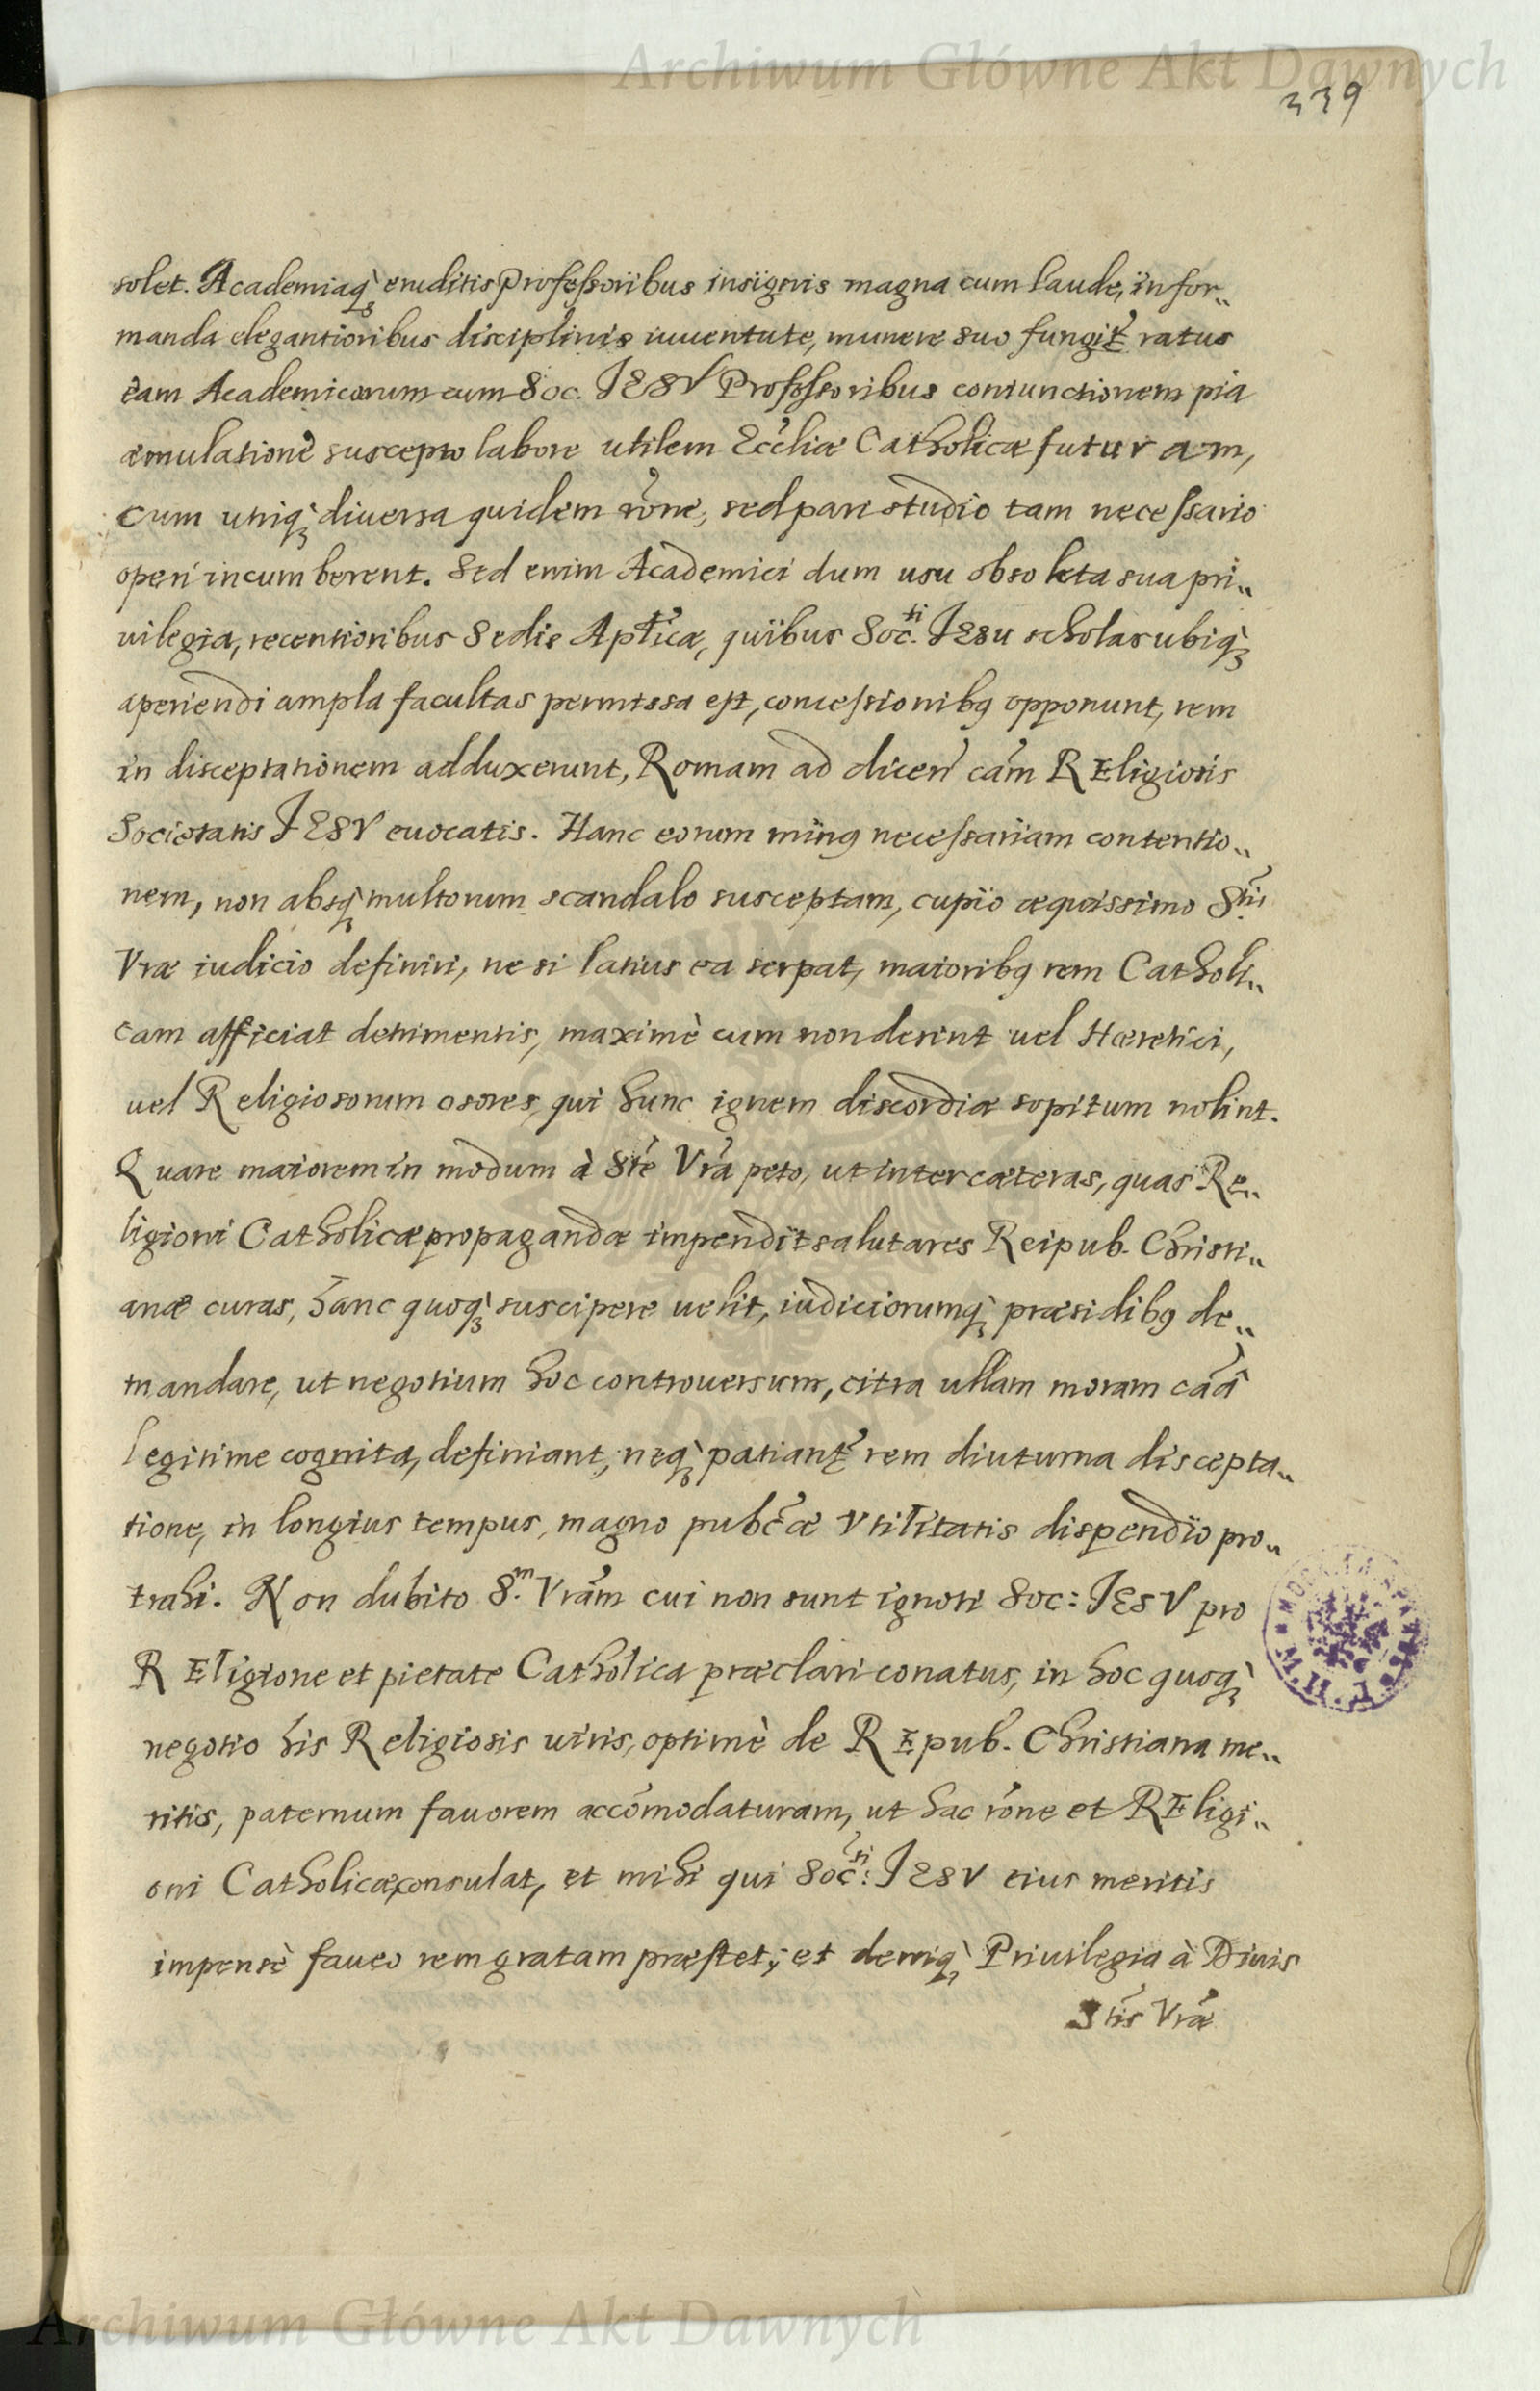 Archiwum Główne Akt Dawnych
339
solet. Academiaq̀₃ eruditis Professoribus insignis magna cum laude, infor„
manda elegantioribus disciplinis iuuentute, munere suo fungit̃ ratus
eam Academicorum cum Soc. IESV Professoribus coniunctionem pia
æmulatione suscepto labore utilem Eccl̃iæ Catholicæ futuram,
cum utriq̀₃ diuersa quidem rõne, sed pari studio tam necessario
operi incumberent. Sed enim Academici dum usu obsoleta sua pri„
uilegia, recentioribus Sedis Apl̃icæ, quibus Soc.ti Iesu scholas ubiq̀₃
aperiendi ampla facultas permissa est, concessionibꝰ opponunt, rem
in disceptationem adduxerunt, Romam ad dicen̄ cãm REligiosis
Societatis IESV euocatis. Hanc eorum minꝰ necessariam contentio„
nem, non absq̀₃ multorum scandalo susceptam, cupio æquissimo S̃tis
Vræ iudicio definiri, ne si latius ea serpat, maioribꝰ rem Catholi„
cam afficiat detrimentis, maximè cum non desint uel Hæretici,
uel Religiosorum osores, qui hunc ignem discordiæ sopitum nolint.
Quare maiorem in modum à S̃te Vrã peto, ut inter cæteras, quas Re„
ligioni Catholicæ propagandæ impendit salutares Reipub. Christi„
anæ curas, hanc quoq̀₃ suscipere uelit, iudiciorumq̀₃ præsidibꝰ de„
mandare, ut negotium hoc controuersum, citra ullam moram cãâ
legitime cognita, definiant, neq̀₃ patiant̃ rem diuturna discepta„
tione, in longius tempus, magno pubc̃æ Vtilitatis dispendio pro„
trahi. Non dubito S.m Vrãm cui non sunt ignoti Soc: IESV pro
REligione et pietate Catholica præclari conatus, in hoc quoq̀₃
negotio his Religiosis uiris, optimè de REpub. Christiana me„
ritis, paternum fauorem accõmodaturam, ut hac rõne et REligi„
oni Catholicæ consulat, et mihi qui Soc:ti IESV eius meritis
impensè faueo rem gratam præstet; et deniq̀₃ Priuilegia à Diuis
S̃tis Vræ
Archiwum Główne Akt Dawnych